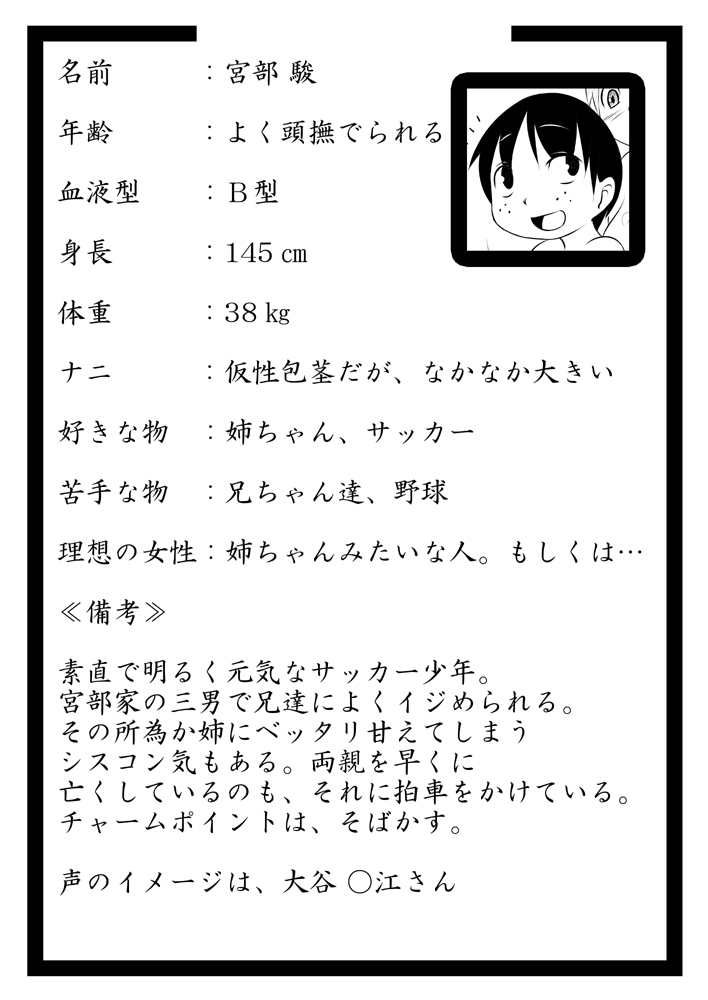 名前 : 宮部 駿
年齢 : よく頭撫でられる
血液型 : B型
身長 : 145 ㎝
体重 : 38 ㎏
好きな物 : 姉ちゃん、サッカー
苦手な物 : 兄ちゃん達、野球
理想の女性 : 姉ちゃんみたいな人。もしくは…
≪備考≫
素直で明るく元気なサッカー少年。
宮部家の三男で兄達によくイジめられる。
その所為か姉にベッタリ甘えてしまう
シスコン気もある。両親を早くに
亡くしているのも、それに拍車をかけている。
チャームポイントは、そばかす。
声のイメージは、大谷 〇江さん